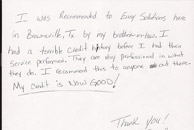 I was Recommended to Easy Solutions here
in Brownsville, Tx by my brother-in-law. I
had a terrible credit history before I had their
service performed. They are very professional in what
they do. I recommend this to anyone out there.
My credit is NOW GOOD!
Thank you!